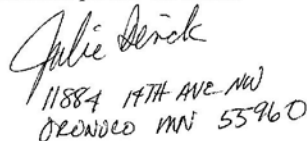 Julie Derick
11884 14TH AVE NW
ORONOCO MN 55960